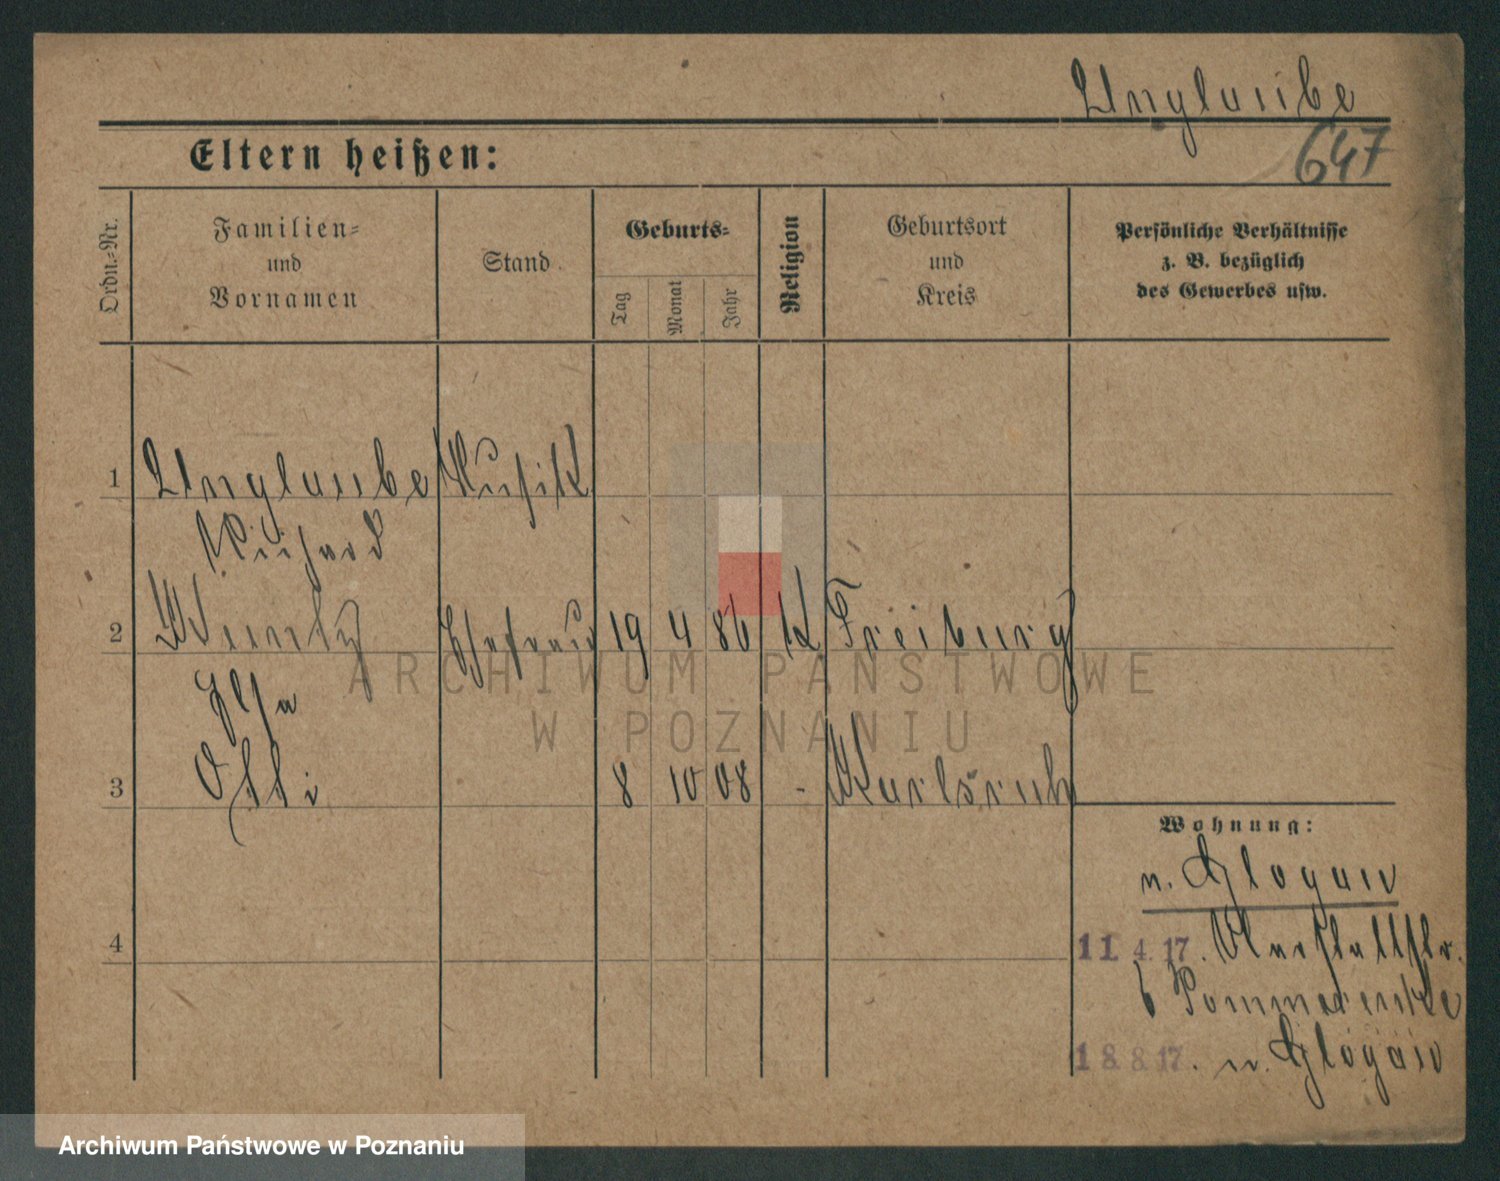 Unglaube
647
Eltern heißen:
Ordn.-Nr.
Familien- und Vornamen
Stand
Geburts-
Tag
Monat
Jahr
Religion
Geburtsort und Kreis
Persönliche Verhältnisse
z. B. bezüglich
des Gewerbes usw.
1 Unglaube
Richard
2 Ehefrau 19 4 86 K Freiburg
Elsa
3 Otti 8 10 08 - Karlsruh
Wohnung:
n. Glogau
4
11 4. 17.
b Pommerenke
18 8. 17. n. Glogau
ARCHIWUM PAŃSTWOWE
W POZNANIU
Archiwum Państwowe w Poznaniu